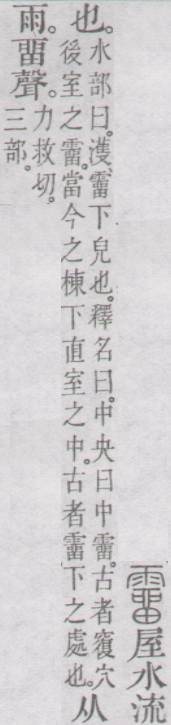 霤屋水流
也。水部曰。濩、霤下皃也。釋名曰。中央曰中霤。古者覆穴
後室之霤。當今之棟下直室之中。古者霤下之處也。从
雨。畱聲。力救切。
三部。